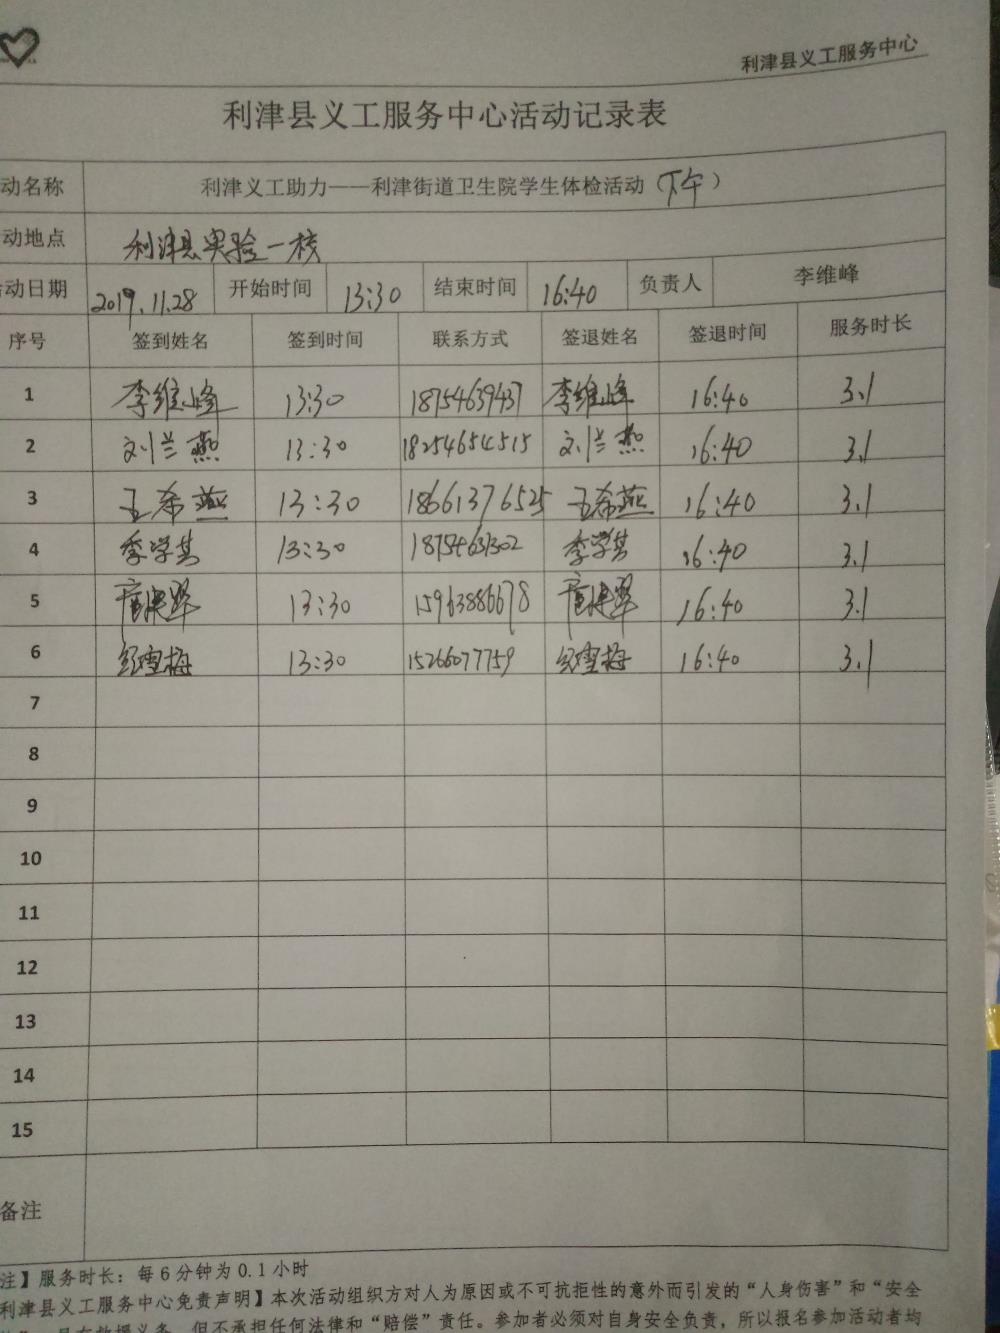 利津县义工服务中心
利津县义工服务中心活动记录表
动名称 利津义工助力——利津街道卫生院学生体检活动（下午）
动地点 利津县实验一校
动日期 2019.11.28 开始时间 13:30 结束时间 16:40 负责人 李维峰
序号 签到姓名 签到时间 联系方式 签退姓名 签退时间 服务时长
1 李维峰 13:30 18754639437 李维峰 16:40 3.1
2 刘兰燕 13:30 18254654515 刘兰燕 16:40 3.1
3 王希燕 13:30 18661376525 王希燕 16:40 3.1
4 李学其 13:30 18754631302 李学其 16:40 3.1
5 13:30 15963886678 16:40 3.1
6 纪雪梅 13:30 15266077759 纪雪梅 16:40 3.1
7
8
9
10
11
12
13
14
15
备注
注】服务时长：每6分钟为0.1小时
利津县义工服务中心免责声明】本次活动组织方对人为原因或不可抗拒性的意外而引发的“人身伤害”和“安全
具有救援义务，但不承担任何法律和“赔偿”责任。参加者必须对自身安全负责，所以报名参加活动者均